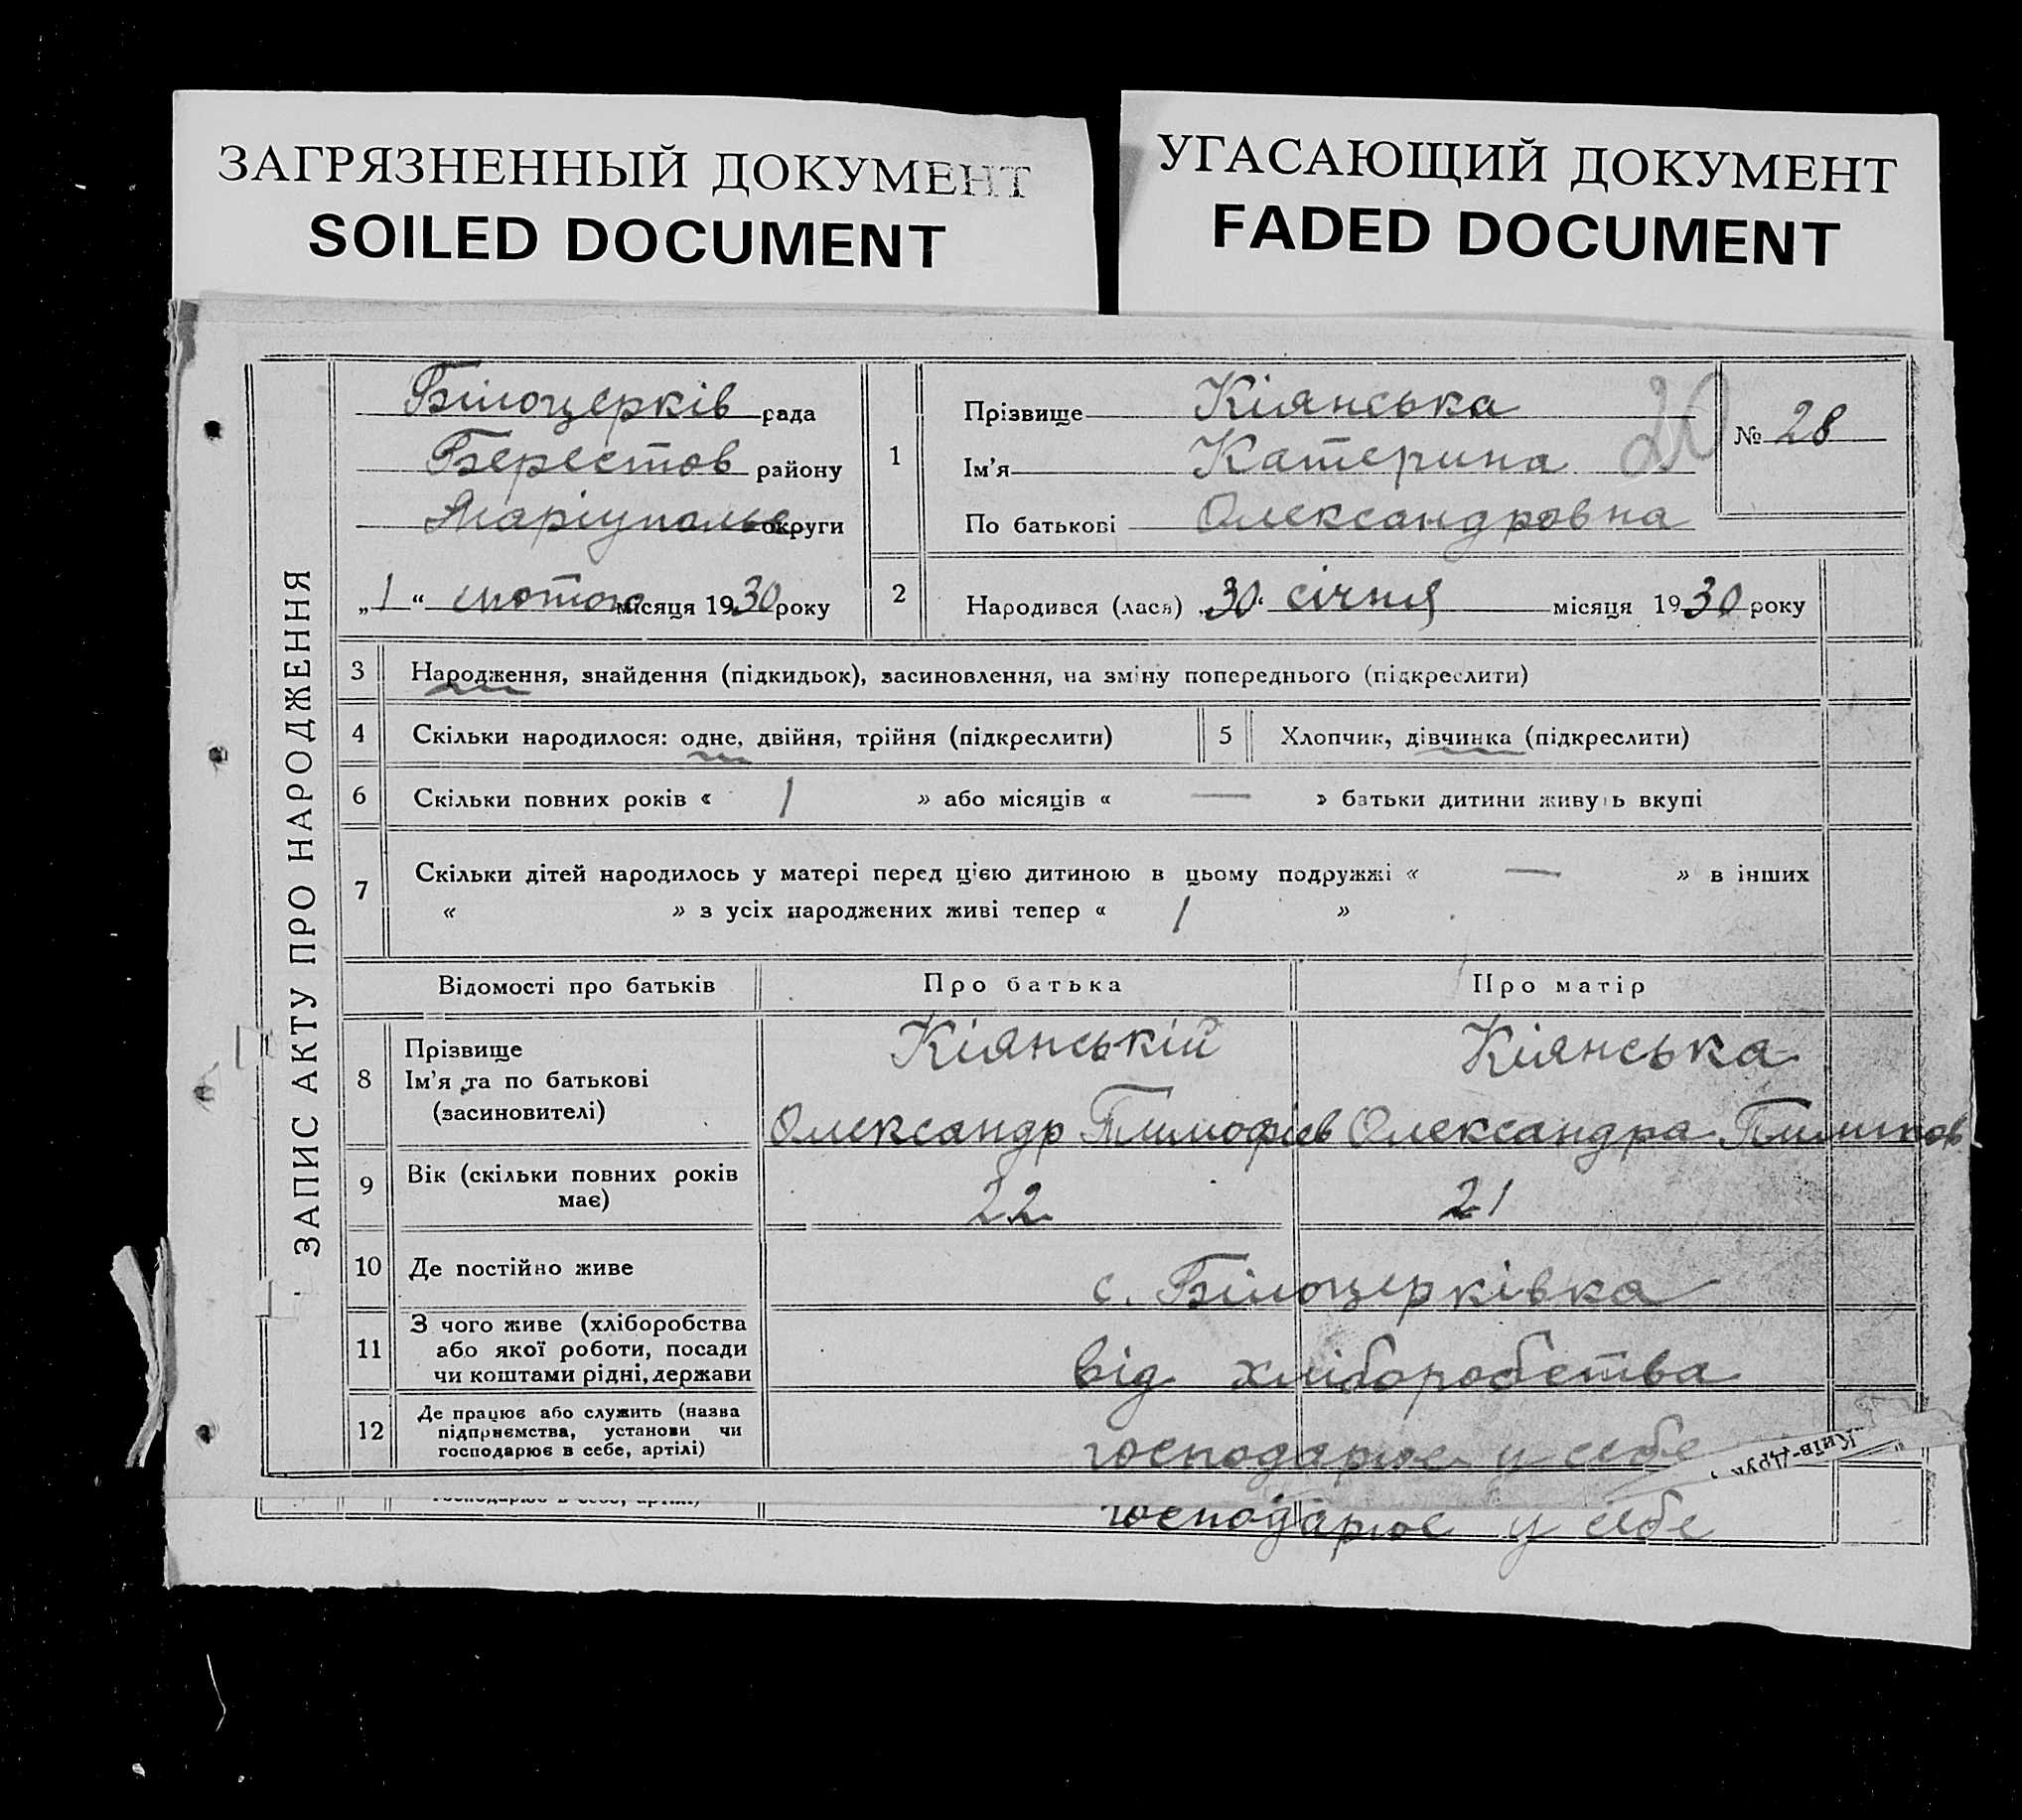 ЗАГРЯЗНЕННЫЙ ДОКУМЕНТ
SOILED DOCUMENT
УГАСАЮЩИЙ ДОКУМЕНТ
FADED DOCUMENT
ЗАПИС АКТУ ПРО НАРОДЖЕННЯ
Білоцерків рада
Берестов району
Маріуполь округи
„1“ лютого місяця 1930 року
1
Прізвище Кіянська
Ім'я Катерина
По батькові Олександровна
20
№ 28
2 Народився (лася) „30“ січня місяця 1930 року
3 Народження, знайдення (підкидьок), засиновлення, на зміну попереднього (підкреслити)
4 Скільки народилося: одне, двійня, трійня (підкреслити)
5 Хлопчик, дівчинка (підкреслити)
6 Скільки повних років « 1 » або місяців « — » батьки дитини живуть вкупі
7 Скільки дітей народилось у матері перед цією дитиною в цьому подружжі « — » в інших
« » з усіх народжених живі тепер « 1 »
Відомості про батьків Про батька Про матір
8 Прізвище
Ім'я та по батькові
(засиновителі)
Кіянській Кіянська
Олександр Тимофіев Олександра
9 Вік (скільки повних років
має)
22 21
10 Де постійно живе
с. Білоцерківка
11 З чого живе (хліборобства
або якої роботи, посади
чи коштами рідні, держави
від хліборобства
12 Де працює або служить (назва
підприємства, установи чи
господарює в себе, артілі)
господарює у себе
„Київ-Друк“
господарює в себе, артілі)
господарює у себе